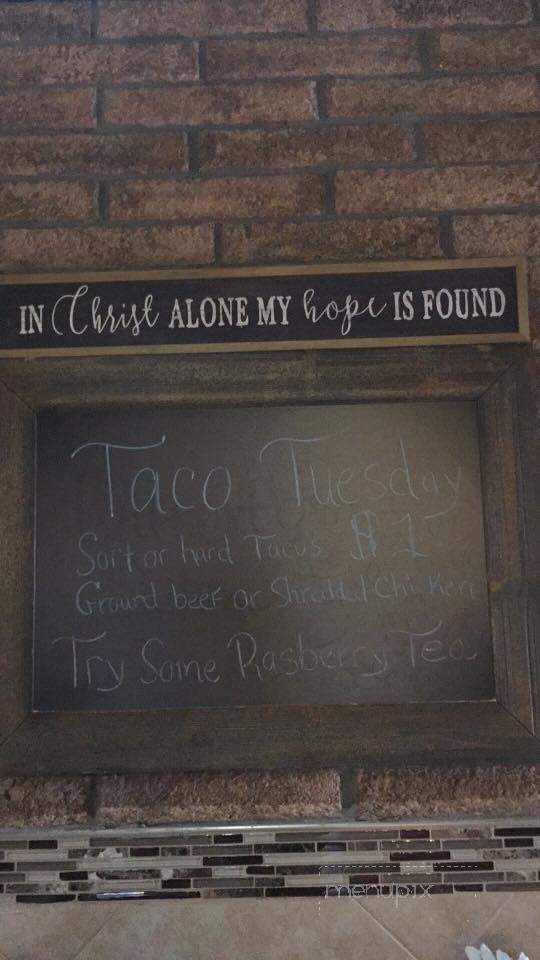 IN Christ ALONE MY hope IS FOUND
Taco Tuesday
Soft or hard Taco's $1
Ground beef or Shredded Chicken
Try Some Rasberry Tea
menupix